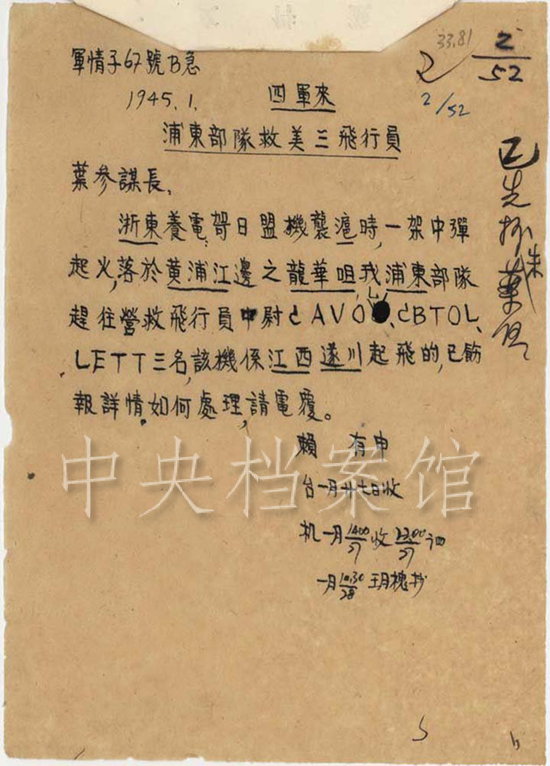 33.81
2
2/52
2/52
軍情子67號B急
1945.1.
四軍來
浦東部隊救美三飛行員
葉參謀長、
浙東養電哿日盟機襲滬時,一架中彈
起火,落於黄浦江邊之龍華咀,我浦東部隊
趕往營救飛行員中尉CAVO、CBTOL、
LETT三名,該機係江西遂川起飛的,已飭
報詳情,如何處理,請電覆。
賴 有申
台一月廿七日收
机一月1400/27收2200/27
一月1030/28 抄
已先抄朱
中央档案馆